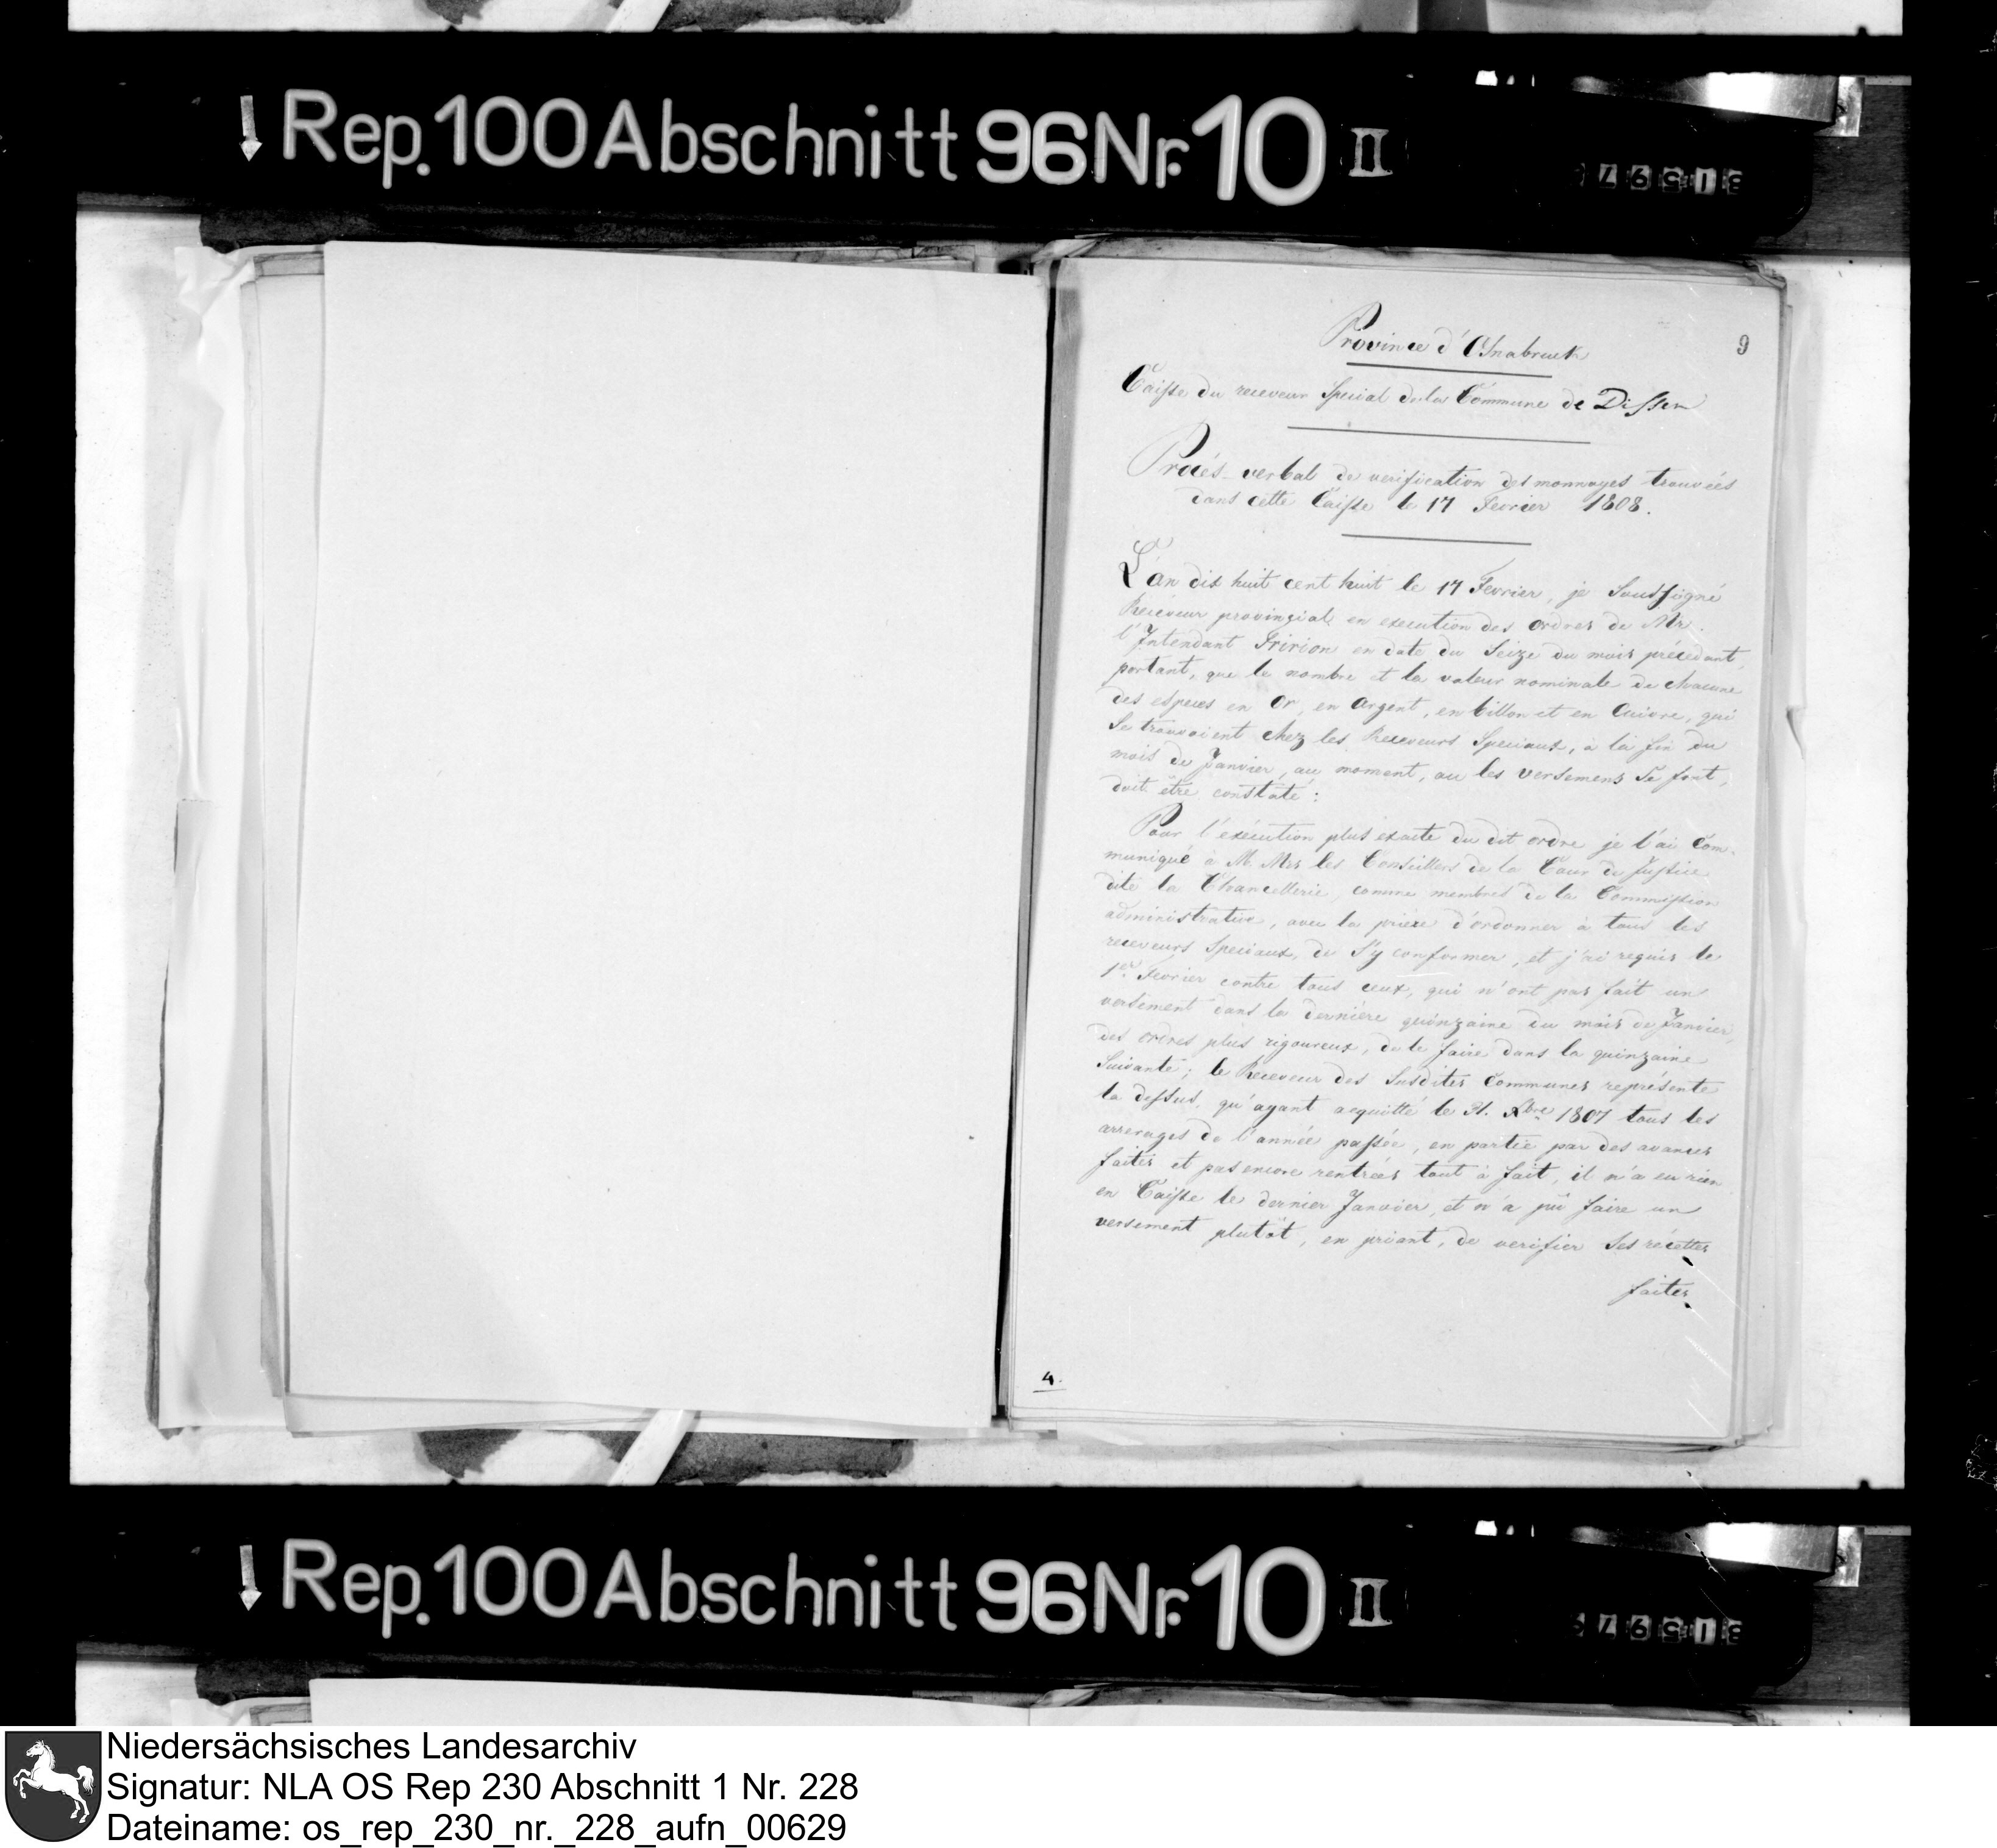 Rep. 100 Abschnitt 96 Nr. 10 II
9
Province d'Osnabruck
Caisse du receveur Special de la Commune de Dissen
Procés-verbal de verification des monnayes trouvées
dans cette Caisse le 17 Fevrier 1808.
L'an dix huit cent huit le 17 Fevrier, je Soussigné
Receveur provinzial, en execution des ordres de Mr.
l'Intendant Fririon en date du Seize du mois précédant,
portant, que le nombre et la valeur nominale de chacune
des especes en Or, en Argent, en billon et en Cuivre, qui
Se trouvoient chez les Receveurs Speciaux, à la fin du
mois de Janvier, au moment, ou les versemens Se font,
doit être constaté:
Pour l'exécution plus exacte du dit ordre je l'ai Com-
muniqué à M. Mrs les Conseillers de la Cour de Justice
dite la Chancellerie, comme membres de la Commission
administrative, avec la prière d'ordonner à tous les
receveurs Speciaux, de S'y conformer, et j'ai requis le
1er Fevrier contre tous ceux, qui n'ont pas fait un
versement dans la dernière quinzaine du mois de Janvier,
des ordres plus rigoureux, de le faire dans la quinzaine
Suivante; le Receveur des Susdites Communes représente
la dessus, qu'ayant acquitté le 31. Xbre 1807 tous les
arrerages de l'année passée, en partie par des avances
faites et pas encore rentrées tout à fait, il n'a eu rien
en Caisse le dernier Janvier, et n'a pû faire un
versement plutôt, en priant, de verifier Ses récettes
faites
4.
Rep. 100 Abschnitt 96 Nr. 10 II
Niedersächsisches Landesarchiv
Signatur: NLA OS Rep 230 Abschnitt 1 Nr. 228
Dateiname: os_rep_230_nr._228_aufn_00629